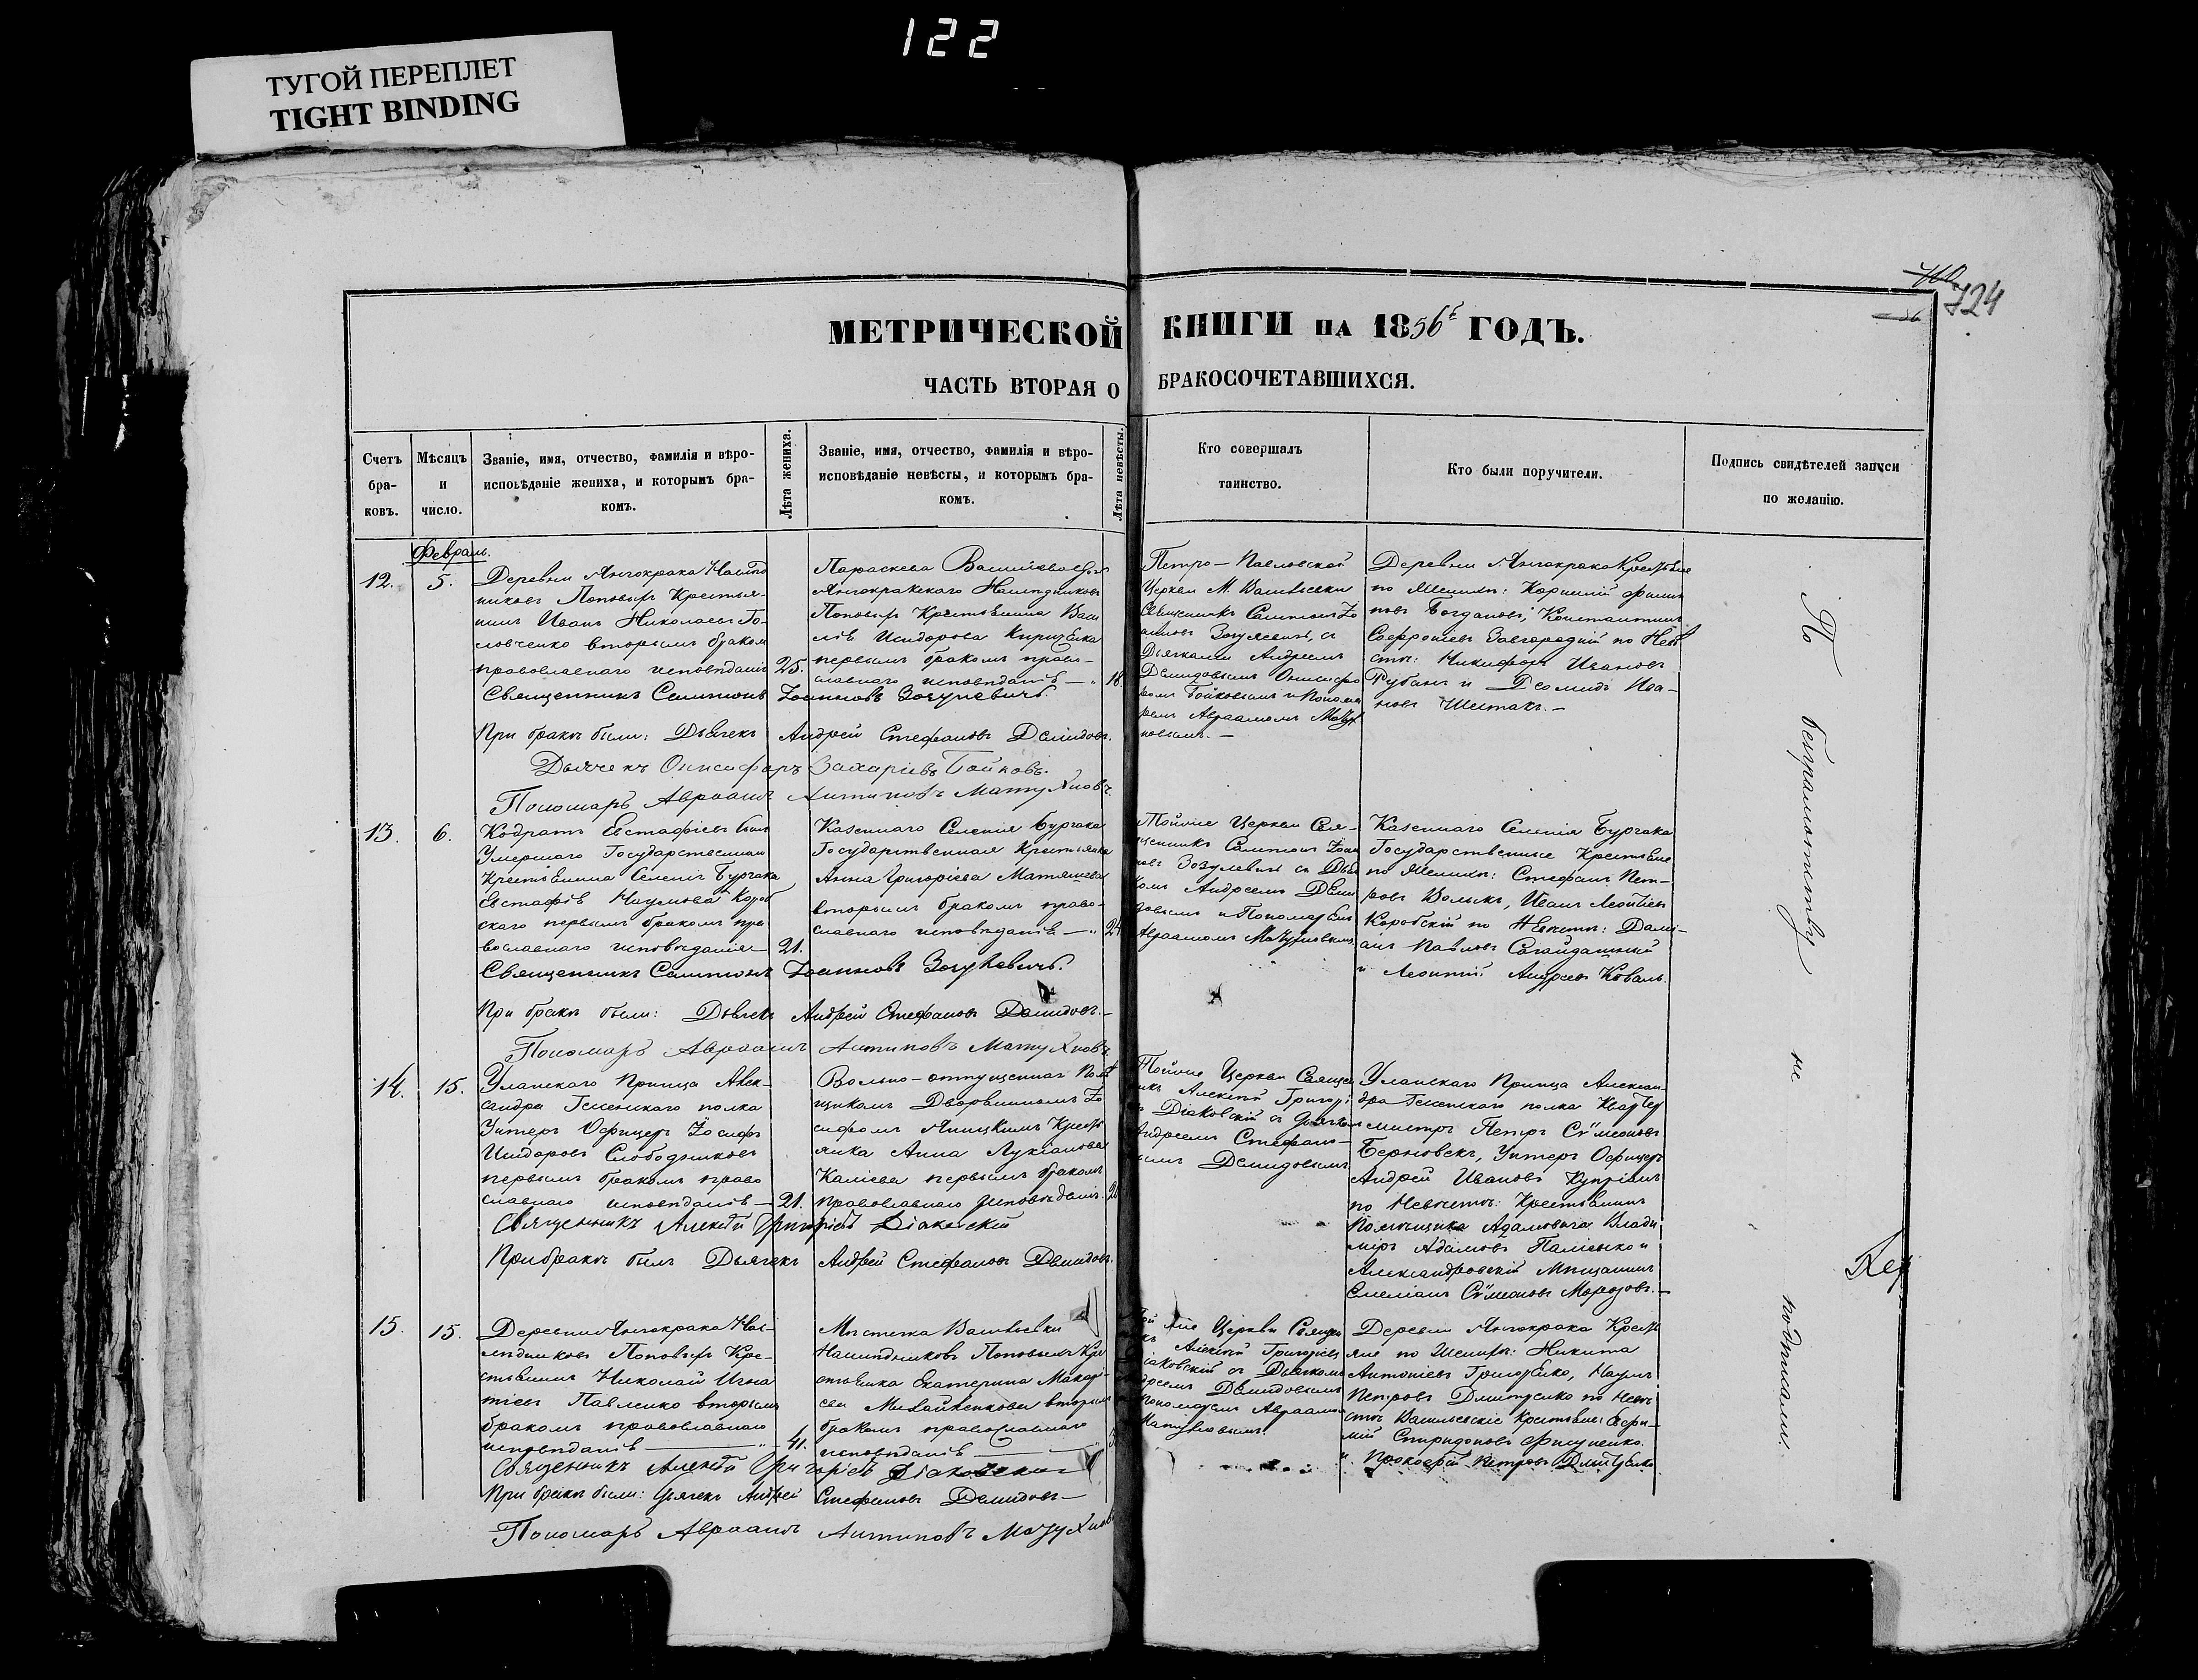 122
ТУГОЙ ПЕРЕПЛЕТ
TIGHT BINDING
724
МЕТРИЧЕСКОЙ КНИГИ НА 1856 ГОДЪ.
ЧАСТЬ ВТОРАЯ О БРАКОСОЧЕТАВШИХСЯ.
Счетъ бра-ковъ.
Мѣсяцъ и число.
Званіе, имя, отчество, фамилія и вѣро-
исповѣданіе жениха, и которымъ бра-
комъ.
Лѣта жениха.
Званіе, имя, отчество, фамилія и вѣро-
исповѣданіе невѣсты, и которымъ бра-
комъ.
Лѣта невѣсты.
Кто совершалъ
таинство.
Кто были поручители.
Подпись свидѣтелей записи
по желанію.
Февраль.
12.
5.
Деревни Янчокрака Наслѣд
никовъ Поповыхъ Крестья-
нинъ Иванъ Николаевъ Го-
ловченко вторымъ бракомъ
православнаго исповѣданія
25.
Параскева Васильева дочь
Янчокракскаго Наслѣдниковъ
Поповыхъ Крестьянина Васи
лія Исидорова
первымъ бракомъ право-
славнаго исповѣданія
18.
Петро-Павловской
Церкви М. Васильевки
Священникъ Сампсонъ Іо
анновъ Зозулевичъ, съ
Дьячками Андреемъ
Демидовымъ Онисифо
ромъ Бойковымъ и Понома
ремъ Авраамомъ
Деревни Янчокрака Крестьяне
по Женихѣ: Корнилій Филип
повъ Богдановъ, Константинъ
Софроніевъ Завгородній по Невѣ
стѣ: Никифоръ Ивановъ
Рубанъ и Деомидъ Ива-
новъ Шестакъ.-
Священникъ Сампсонъ Іоанновъ Зозулевичъ.
При бракѣ были: Дьячекъ Андрей Стефановъ Демидовъ.
Дьячекъ Онисифоръ Захаріевъ Бойковъ.
Пономарь Авраамъ Антиповъ
13.
6.
Кодратъ Евстафіевъ сынъ
Умершаго Государственнаго
Крестьянина Селенія Бурчака
Евстафія Наумова Короб
скаго первымъ бракомъ пра
вославнаго исповѣданія
21.
Казеннаго Селенія Бурчака
Государственная Крестьянка
Анна Григоріева Матяшева
вторымъ бракомъ право-
славнаго исповѣданія
24
Тойже Церкви Свя-
щенникъ Сампсонъ Іоан
новъ Зозулевичъ съ Дьяч
комъ Андреемъ Деми
довымъ и Пономаремъ
Авраамомъ
Казеннаго Селенія Бурчака
Государственные Крестьяне
по Женихѣ: Стефанъ Пет-
ровъ Волыкъ, Иванъ Леонтіевъ
Коробскій по Невѣстѣ: Дамі-
анъ Павловъ Сагайдашный
и Леонтій Андреевъ Коваль.
Священникъ Сампсонъ Іоанновъ Зозулевичъ.
При бракѣ были: Дьячекъ Андрей Стефановъ Демидовъ.
Пономарь Авраамъ Антиповъ
14.
15.
Уланскаго Принца Алек-
сандра Гессенскаго полка
Унтеръ Офицеръ Іосифъ
Исидоровъ Слободяниковъ
первымъ бракомъ право
славнаго исповѣданія
21.
Вольно-отпущенная Помѣ
щикомъ Дворяниномъ Іо
сифомъ Крестья
янка Анна Лукіанова
Каліева первымъ бракомъ
православнаго исповѣданія.
Тойже Церкви Священ
никъ Алексій Григорі
Діаковскій съ Дьячкомъ
Андреемъ Стефано-
вымъ Демидовымъ
Уланскаго Принца Алексан-
дра Гессенскаго полка Квартер
мистръ Петръ Сѵмеоновъ
Унтеръ Офицеръ
Андрей Ивановъ Купріянъ
по Невѣстѣ: Крестьянинъ
Помѣщика Адамовича Влади
міръ Адамовъ и
Александровскій Мѣщанинъ
Емеліанъ Сѵмеоновъ Морозовъ.-
Священникъ Алексій Григоріевъ Діаковскій
При бракѣ былъ Дьячекъ Андрей Стефановъ Демидовъ.
15.
15.
Деревни Янчокрака Нас-
лѣдниковъ Поповыхъ Кре-
стьянинъ Николай Игна
тіевъ Павленко вторымъ
бракомъ православнаго
исповѣданія
41.
Мѣстечка Васильевки
Наслѣдниковъ Поповыхъ Кре
стьянка Екатерина Макарі-
ева Михайленкова вторымъ
бракомъ православнаго
исповѣданія
Той же Церкви Священ
никъ Алексій Григоріевъ
Діаковскій съ Дьячкомъ
Андреемъ Демидовымъ
Пономаремъ Авраамомъ
Деревни Янчокрака Кресть
яне по Женихѣ: Никита
Антоніевъ Наумъ
Петровъ Дмитренко по Невѣ
стѣ Васильевскіе Крестьяне: Ефи-
мій Спиридоновъ Фисуненко.
и Прокофій Петровъ
Священникъ Алексій Григоріевъ Діаковскій
При бракѣ были: Дьячекъ Андрей Стефановъ Демидовъ
Пономарь Авраамъ Антиповъ
По безграмотству не подписали.